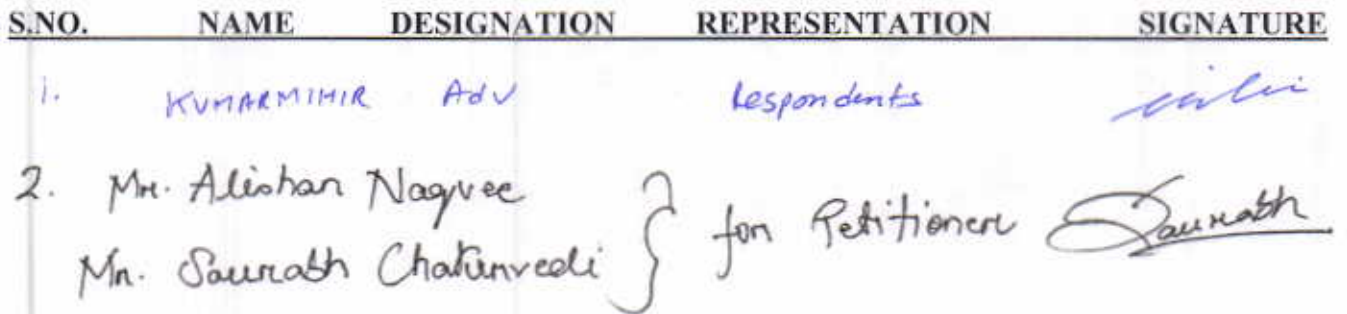 S.NO. NAME DESIGNATION REPRESENTATION SIGNATURE
1. KUMARMIHIR Adv Respondents
2. Mr. Alishan Naqvee
Mr. Saurabh Chaturvedi } for Petitioner Saurabh